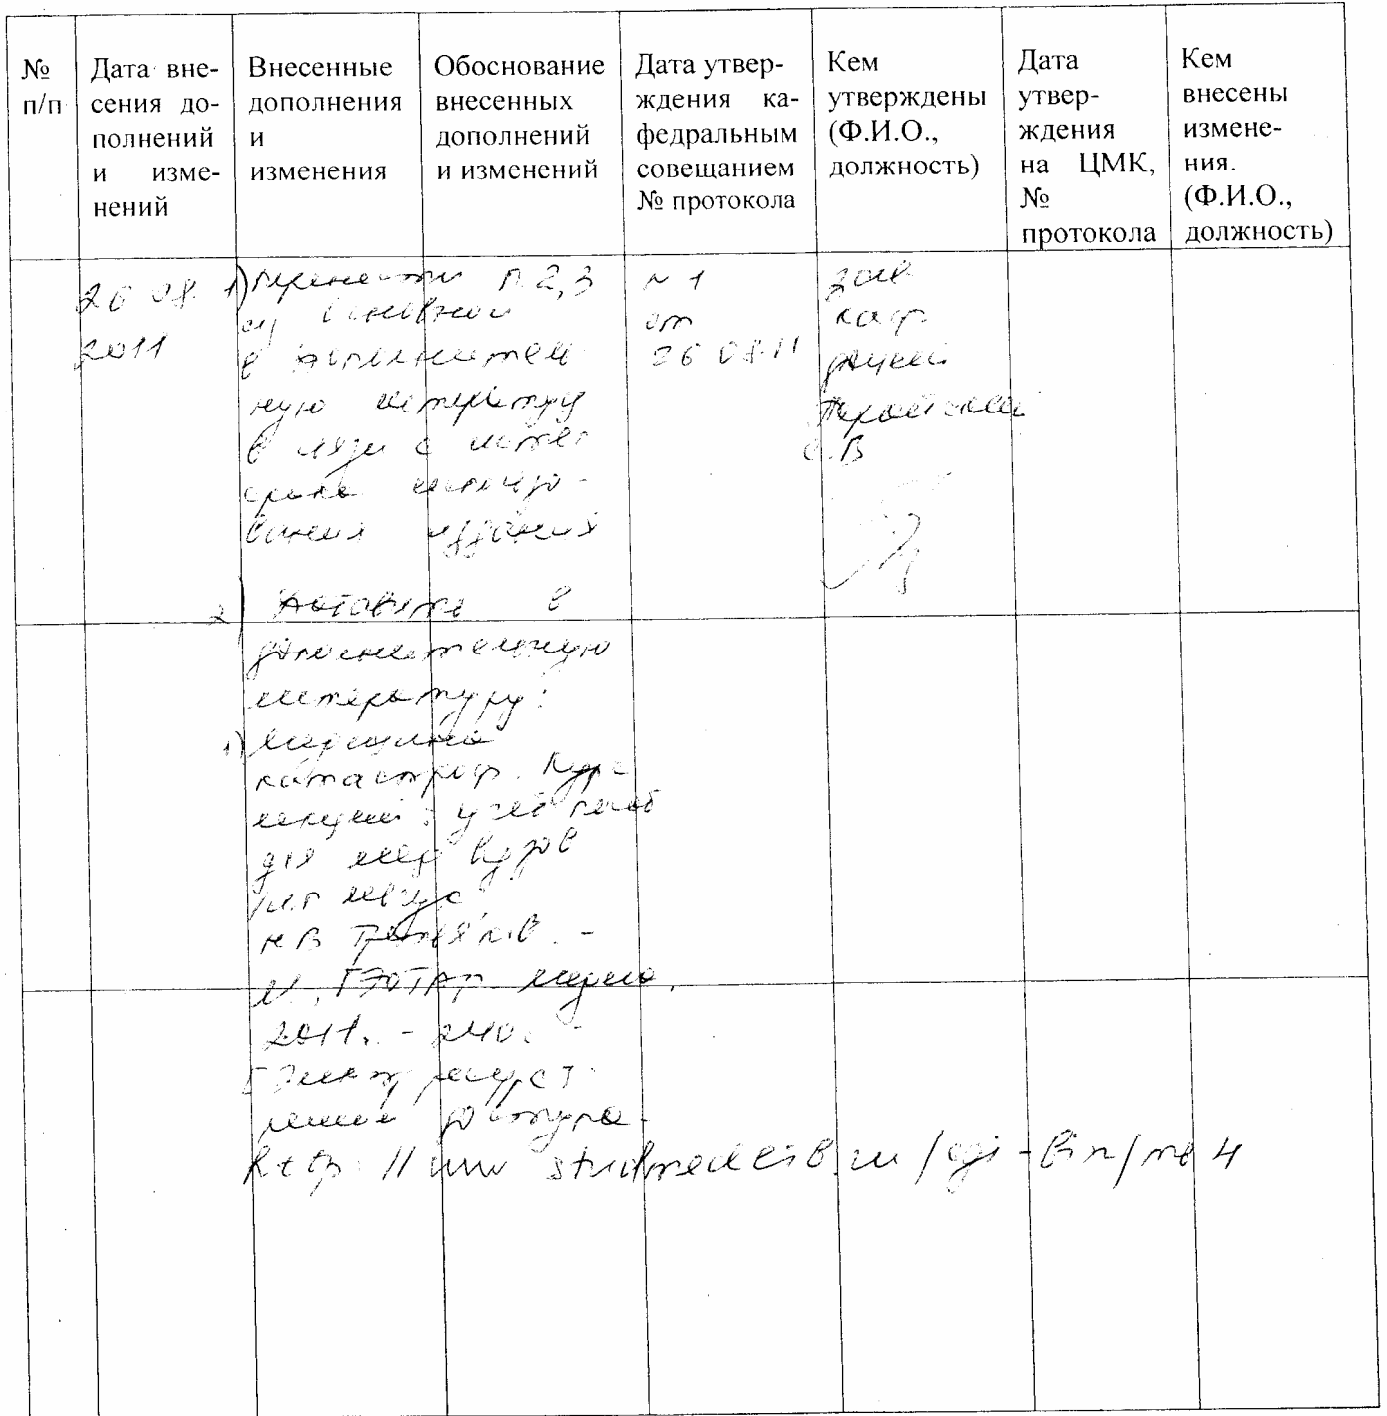 № п/п
Дата вне-
сения до-
полнений
и изме-
нений
Внесенные
дополнения
и
изменения
Обоснование
внесенных
дополнений
и изменений
Дата утвер-
ждения ка-
федральным
совещанием
№ протокола
Кем
утверждены
(Ф.И.О.,
должность)
Дата
утвер-
ждения
на ЦМК,
№
протокола
Кем
внесены
измене-
ния.
(Ф.И.О.,
должность)
26 08
2011
1) Перенести п. 2,3
из основной
в дополнитель
ную литературу
в связи с истеч
срока использо-
вания издания
2) Добавить в
дополнительную
литературу:
1) Медицина
катастроф. Курс
лекций: учеб пособ
для мед вузов
И.В.
М., ГЭОТАР медиа,
2011. - 240с. -
[Электр ресурс]
режим доступа -
http://www studmedlib.ru/cgi-bin/mb4
№ 1
от
26 08.11
зав
каф
В